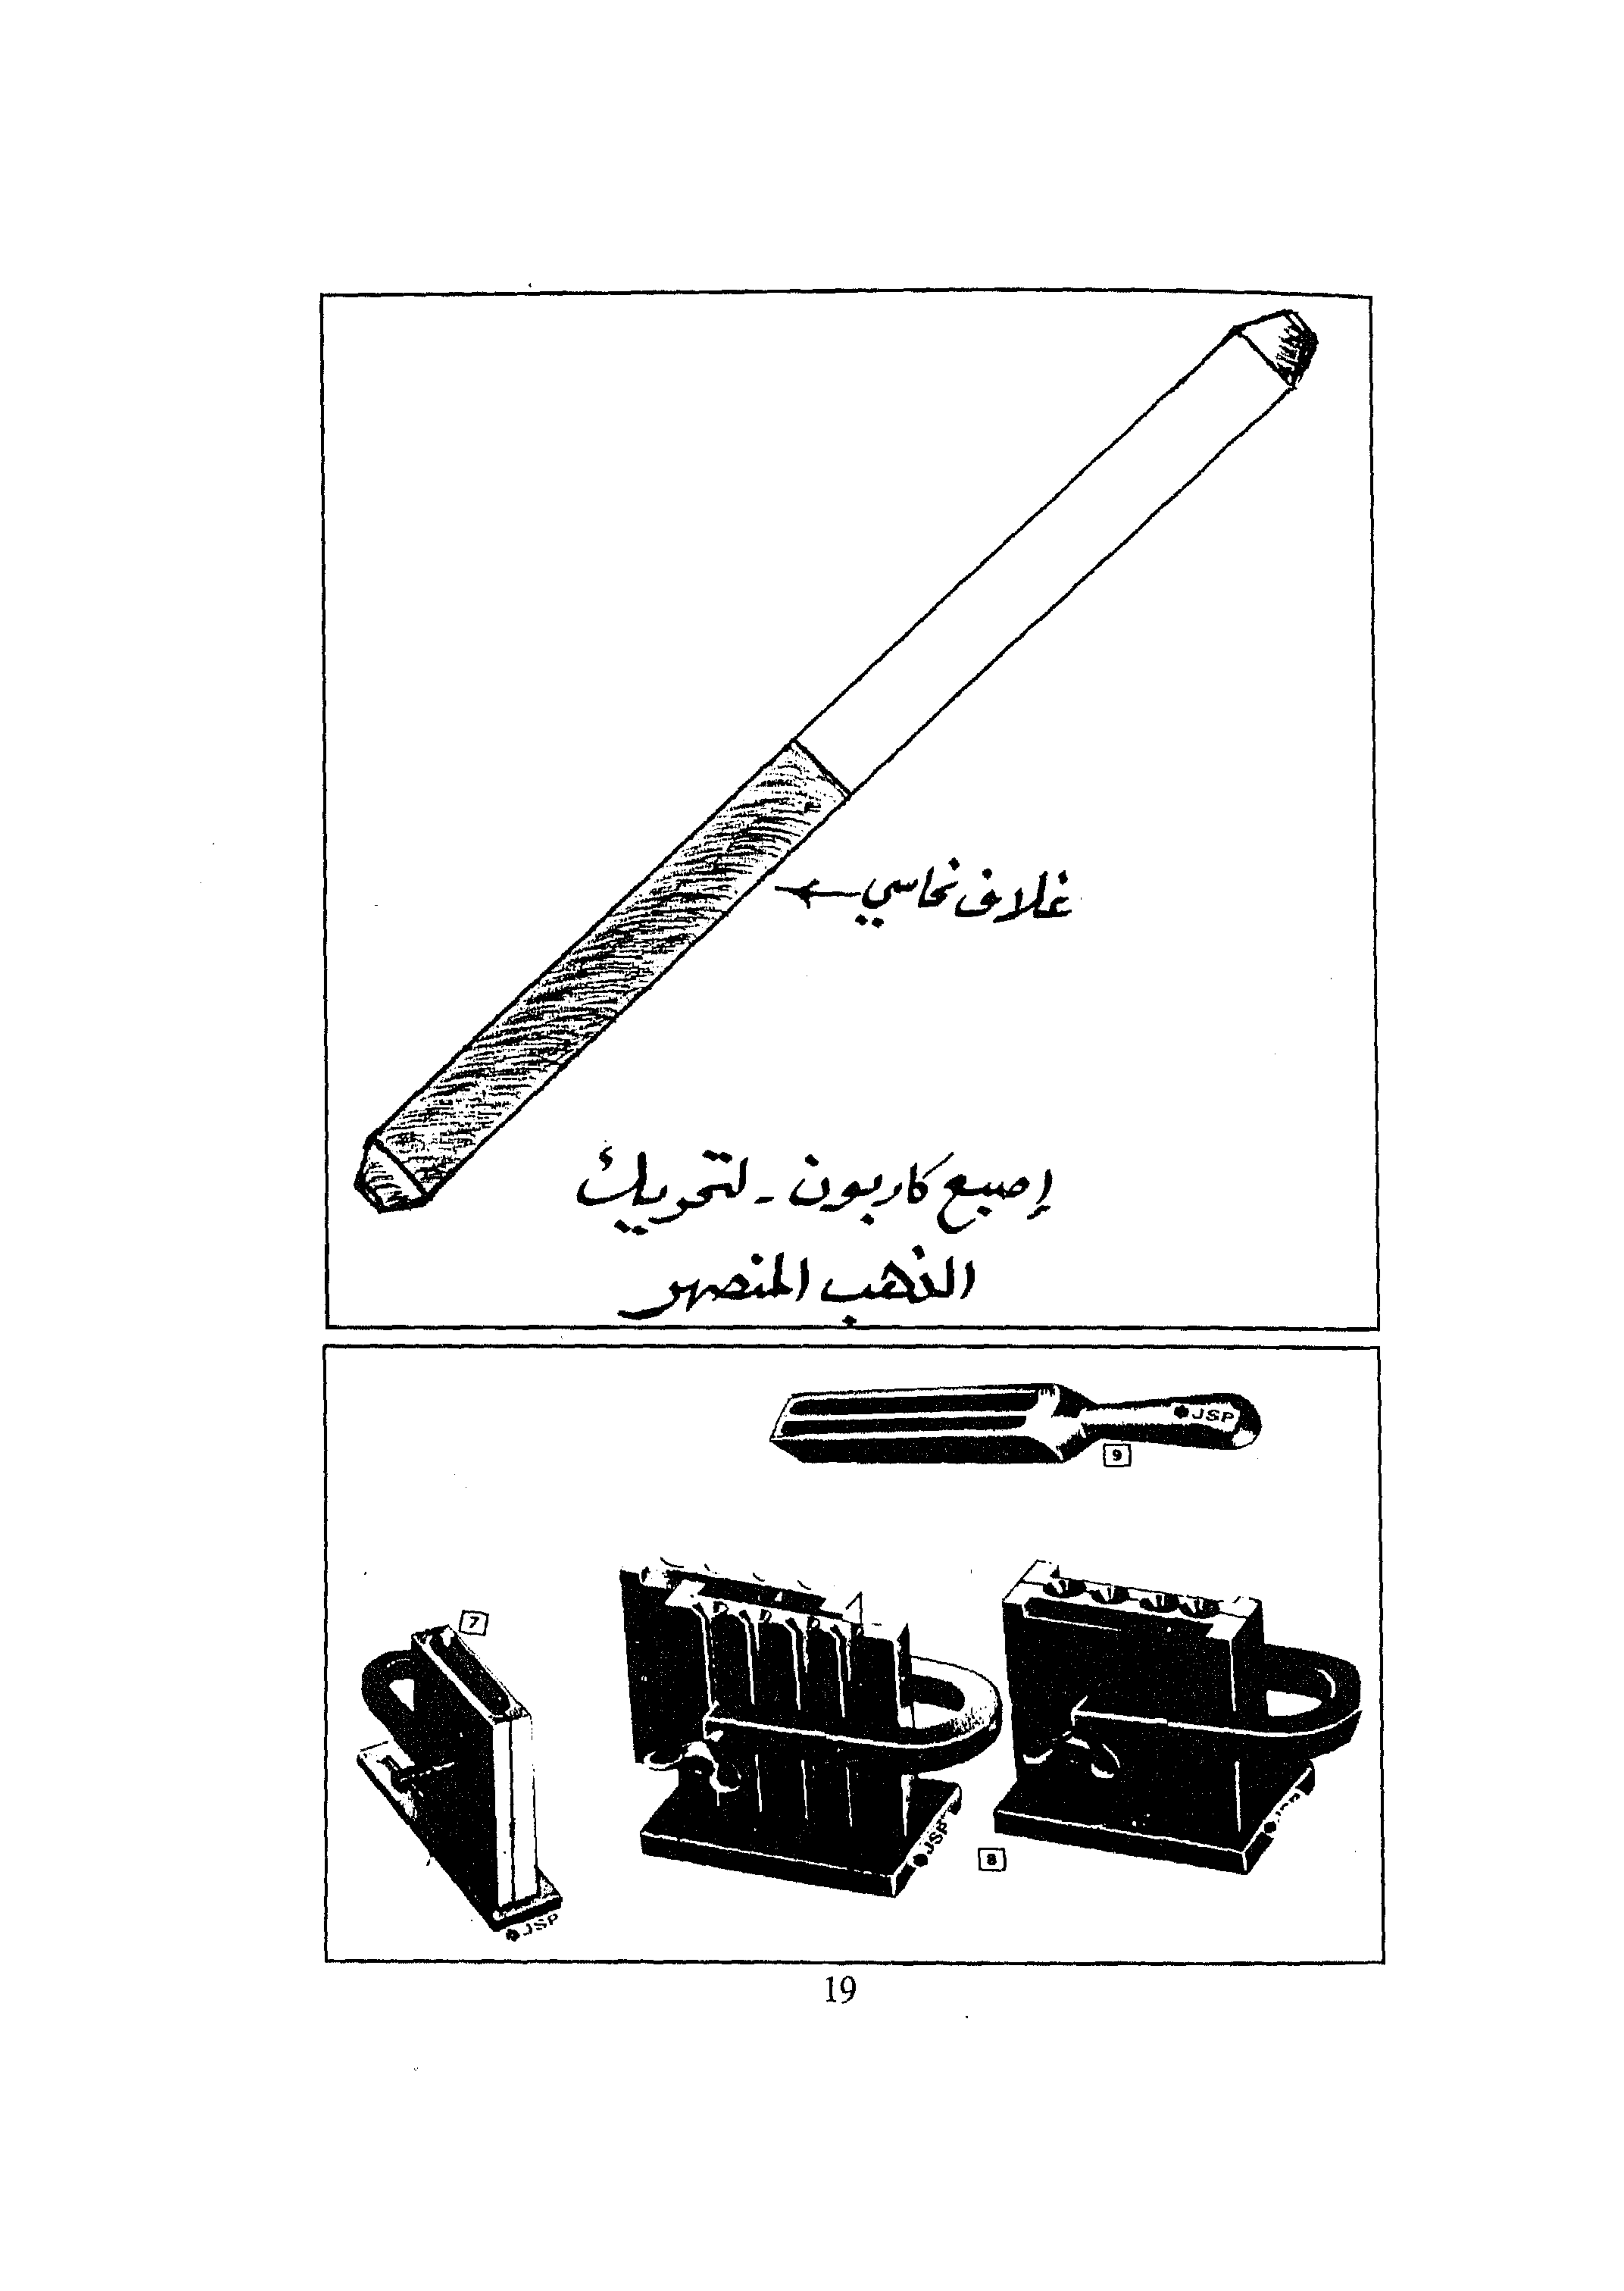 غلاف نحاسي
إصبع كاربون - لتحريك
الذهب المنصهر
JSP
9
7
JSP
8
JSP
19